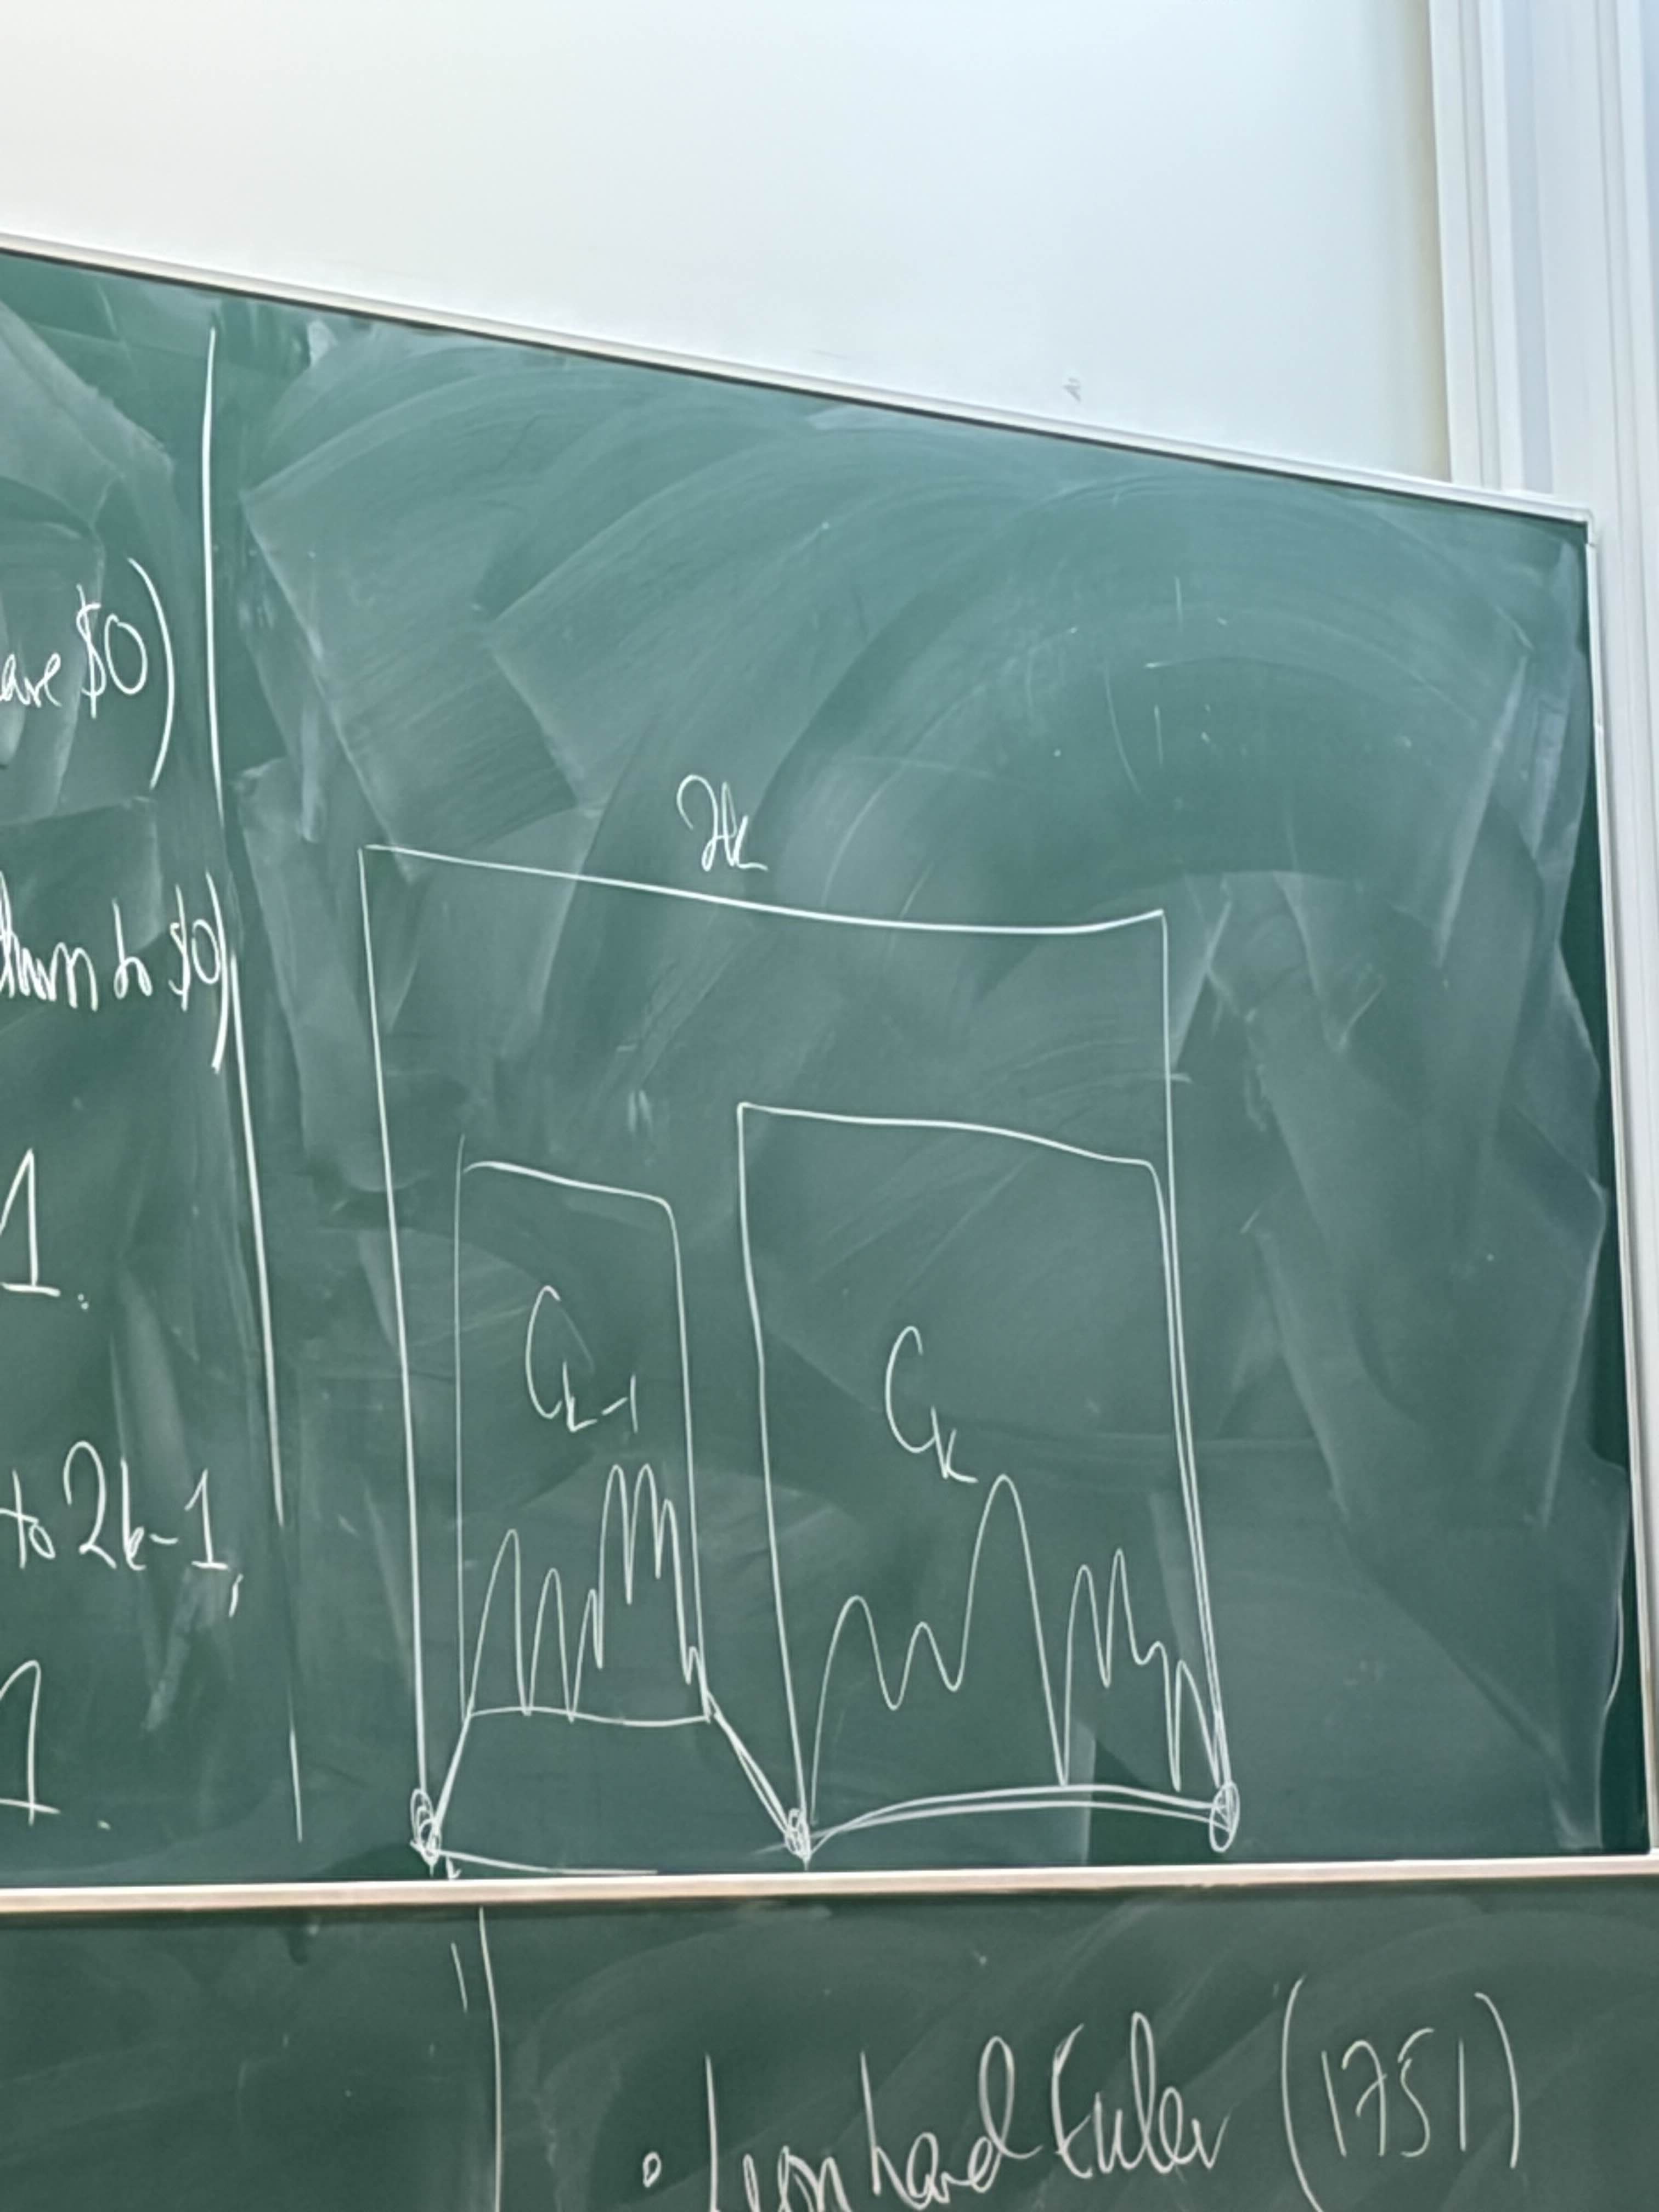 are $0)
to $0)
1.
to 2k-1,
1.
2k
C_{k-1}
C_k
• Leonhard Euler (1751)